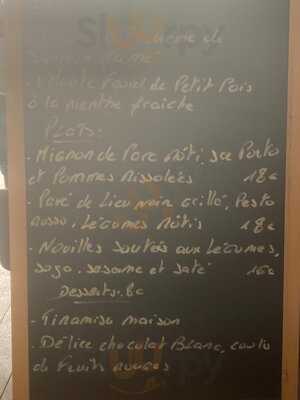 de
Saumon Fumé
- Velouté Froid de Petit Pois
à la menthe fraîche
PLATS:
- Mignon de Porc Rôti, sce Porto
et Pommes Rissolées 18€
- Pavé de Lieu noir grillé, Pesto
Rosso, Légumes Rôtis 18€
- Nouilles sautées aux Légumes,
soja, sésame et saté 16€
Desserts: 8€
- Tiramisu maison
- Délice chocolat Blanc, coulis
de Fruits rouges